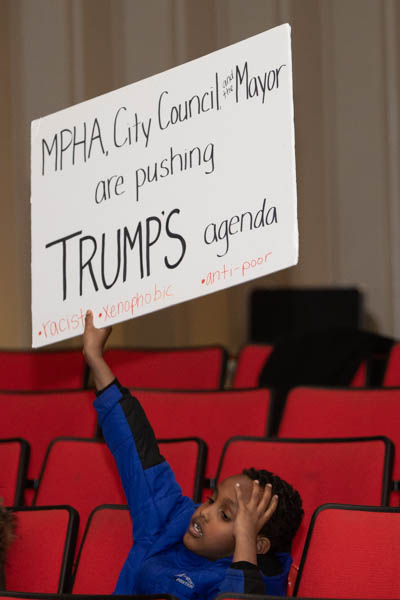 MPHA, City Council, and the Mayor
are pushing
TRUMP'S agenda
•racist •xenophobic •anti-poor